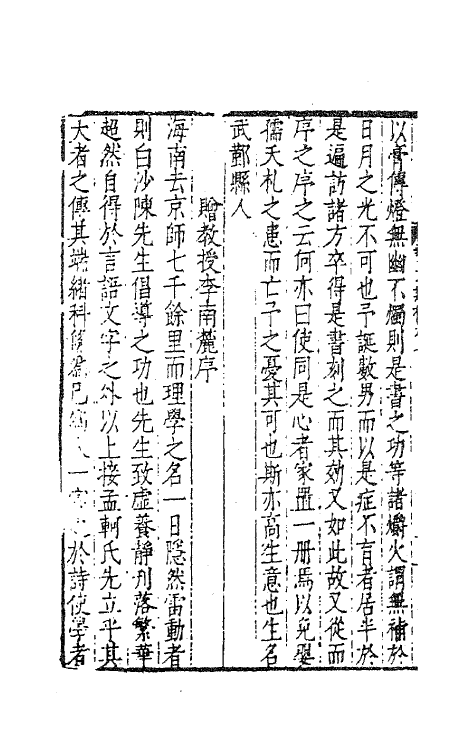 以膏傳燈無幽不燭則是書之功等諸爝火謂無補於
日月之光不可也予誕數男而以是症不育者居半於
是遍訪諸方卒得是書刻之而其効又如此故又從而
序之序之云何亦曰使同是心者家置一册焉以免嬰
孺夭札之患而亡予之憂其可也斯亦高生意也生名
武鄞縣人
贈教授李南麓序
海南去京師七千餘里而理學之名一日隱然雷動者
則白沙陳先生倡導之功也先生致虛養靜刋落繁華
超然自得於言語文字之外以上接孟軻氏先立乎其
大者之傳其端緒科級爲已一於詩使學者